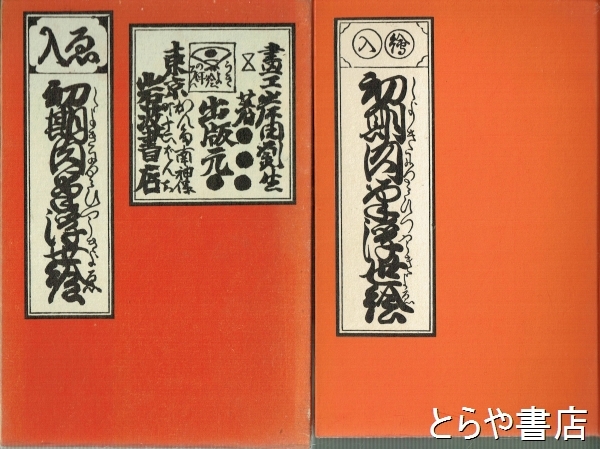 畫工岸田劉生
著
出版元
東京
かんだ南神保
岩波書店
ゑ入
初期肉筆浮世絵
しよきにくひつうきよゑ
繪入
初期肉筆浮世絵
しよきにくひつうきよゑ
とらや書店